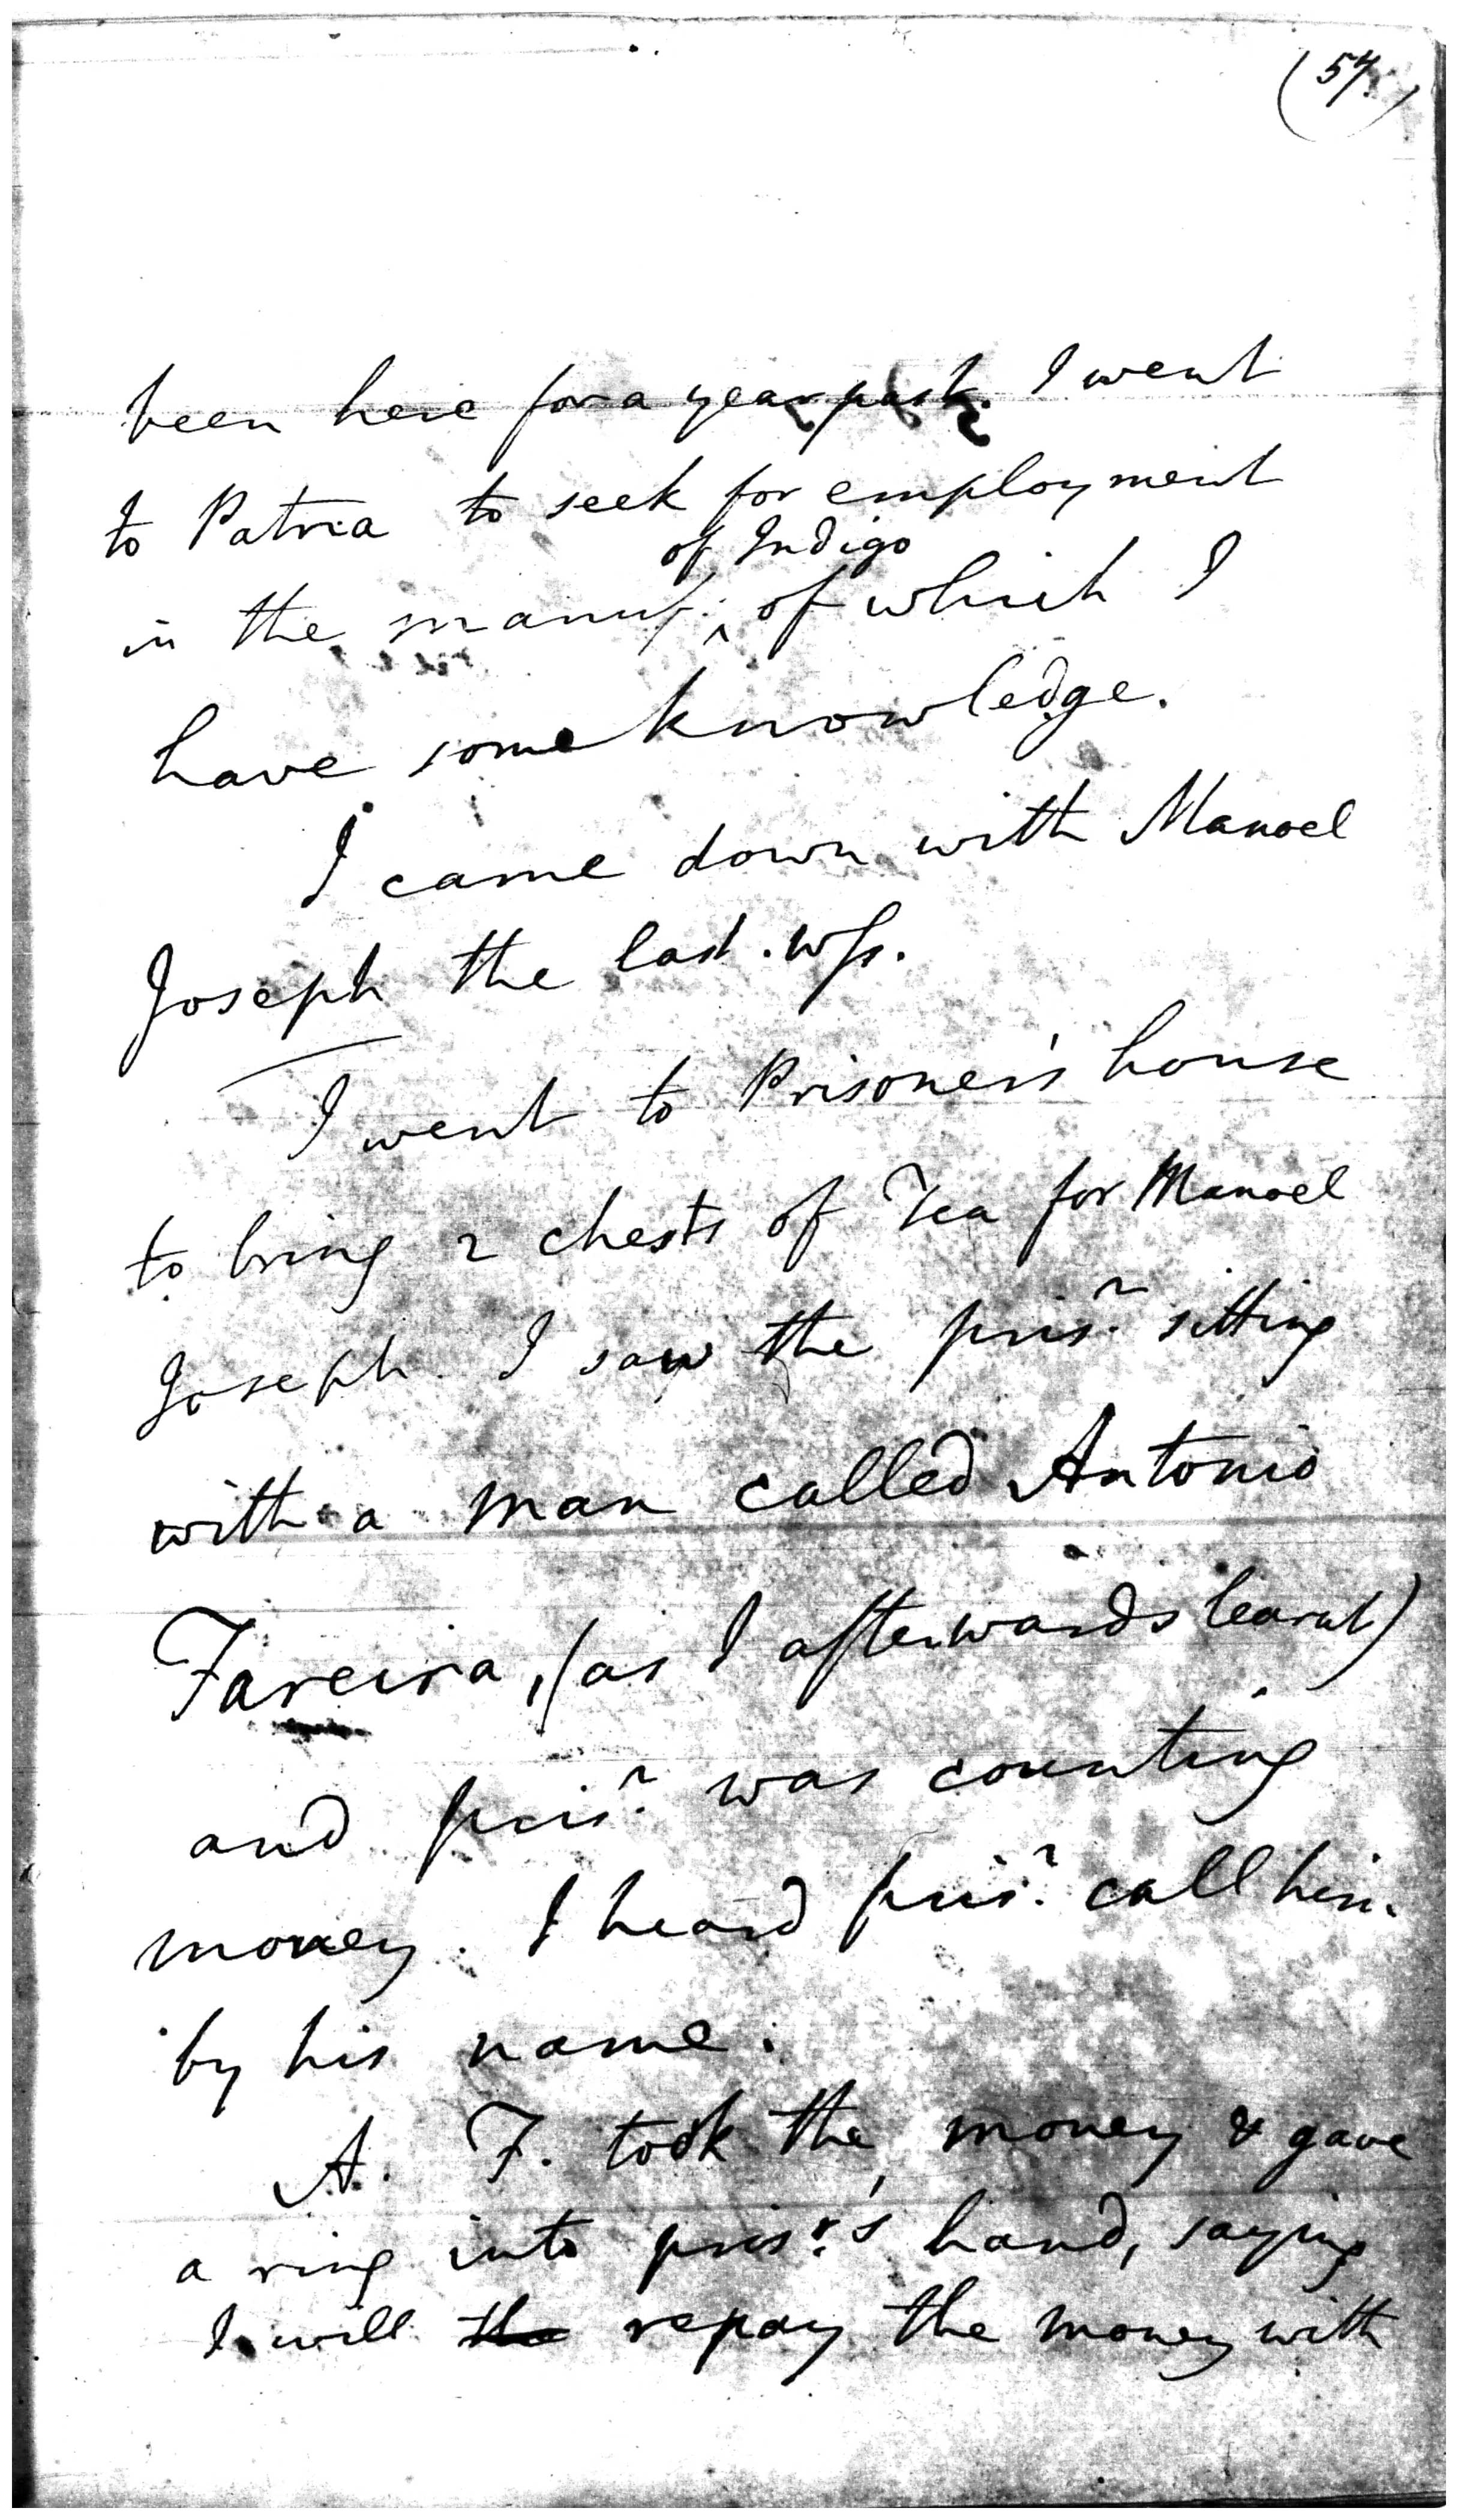 (54.)
been here for a year past. I went
to Patna to seek for employment
of Indigo
in the manuf: ‸ of which I
have some knowledge.
I came down with Manoel
Joseph the last. wss.
I went to Prisoner's house
to bring 2 chests of Tea for Manoel
Joseph. I saw the prisr. sitting
with a man called Antonio
Fareira, (as I afterwards learnt)
and prisr. was counting
money. I heard prisr. call him
by his name.
A. F. took the money & gave
a ring into prisr.'s hand, saying
I will the repay the money with